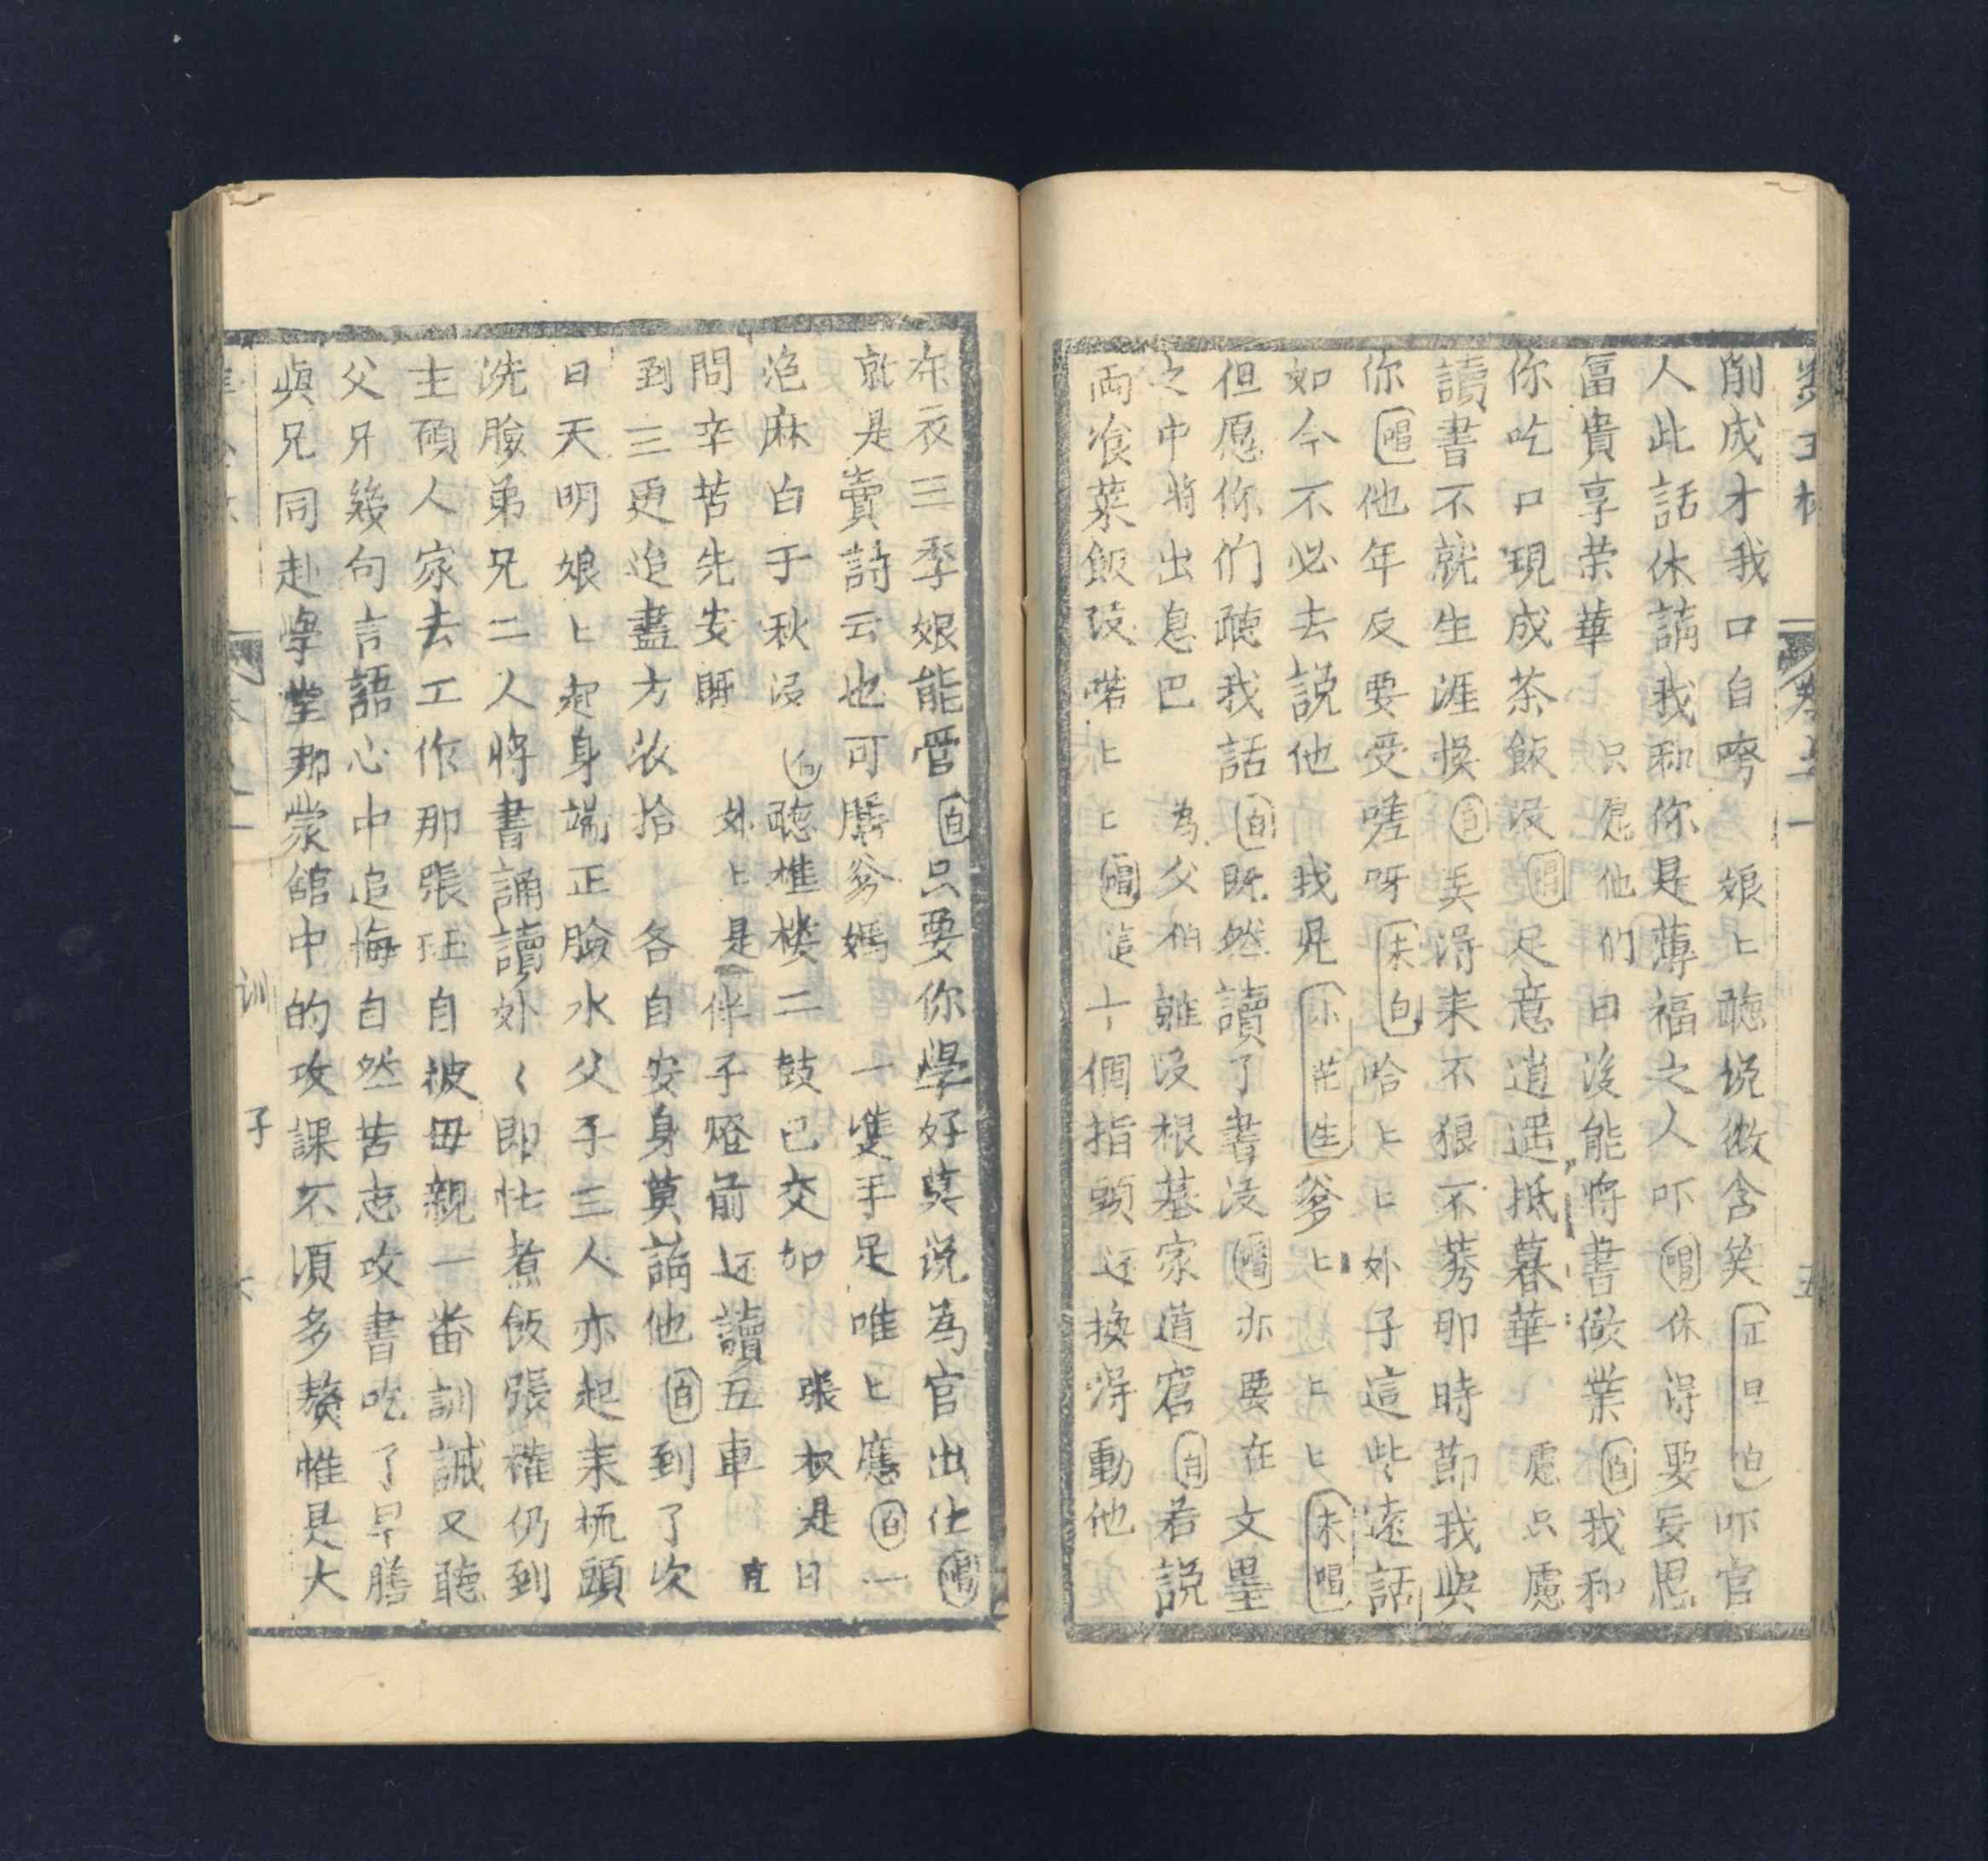 卷五一
五
削成才我口自夸　娘上聴说微含笑（正旦白）吓官
人此話休講我和你是薄福之人吓（唱）休得要妄思
富貴享荣華　只愿他們日後能將書做業（白）我和
你吃口現成茶飯没（唱）足意逍遥抵暮華　慮只慮
讀書不就生涯换（白）美得来不狼不莠那時節我與
你（唱）他年反要受嗟呀（末白）哈上上外子這些遠話
如今不必去説他　我見（小花生）爹上上上（末唱）
但愿你们聴我話（白）既然讀了書没（唱）亦要在文墨
之中将出息巴　為父伯雖没根基家道窘（白）若説
両飡菜飯没喏上上（唱）這十個指頭还换得動他
布衣三季娘能管（白）只要你學好莫说為官出仕（唱）
就是賣詩云也可膳爹媽　一隻手足唯上應（白）一
疤麻白于秋没（白）聴樵楼二鼓已交加　張权是日
問辛苦先安睡　外上是一伴子燈前还讀五車
到三更追盡方收拾　各自安身莫講他（白）到了次
日天明娘上起身端正臉水父子三人亦起耒梳頭
洗臉弟兄二人將書誦讀外〻即忙煮飯張權仍到
主顧人家去工作那張珏自被毋親一畨訓誡又聴
父牙幾句言語心中追悔自然苦志攻書吃了早膳
與兄同赴學堂那蒙舘中的攻課不須多贅惟是大
训
子